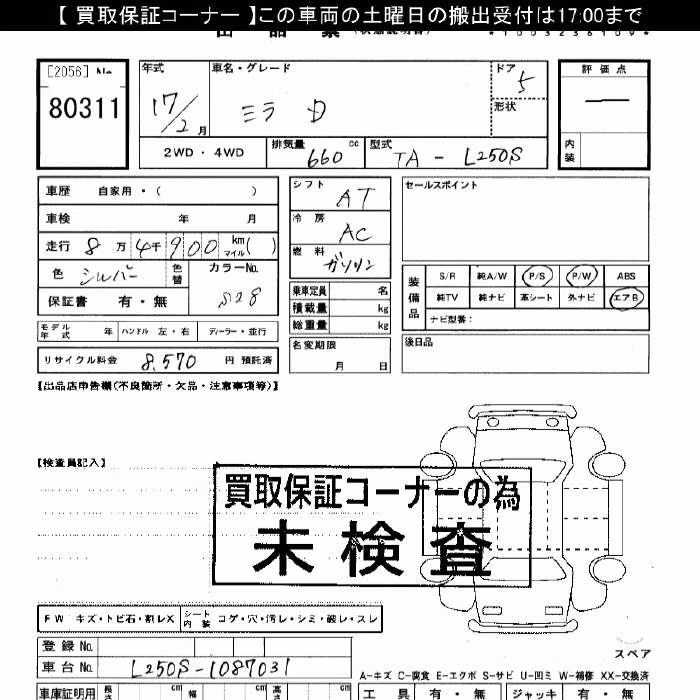 【 買取保証コーナー 】この車両の土曜日の搬出受付は17:00まで
[2056] No.
80311
年式
17/2月
車名・グレード
ミラ D
ドア
5
形状
2WD・4WD
排気量 660 cc
型式 TA-L250S
評価点
内装
車歴 自家用・( )
車検 年 月
走行 8万4千900 km マイル( )
色 シルバー 色替
カラーNo. S28
保証書 有・無
モデル年式 年 ハンドル 左・右 ディーラー・並行
リサイクル料金 8,570 円 預託済
シフト AT
冷房 AC
燃料 ガソリン
乗車定員 名
積載量 kg
総重量 kg
名変期限
月 日
セールスポイント
装備品
S/R 純A/W P/S P/W ABS
純TV 純ナビ 革シート 外ナビ エアB
ナビ型番:
後日品
【出品店申告欄(不良箇所・欠品・注意事項等)】
【検査員記入】
買取保証コーナーの為
未検査
FW キズ・トビ石・割レX シート内装 コゲ・穴・汚レ・シミ・破レ・スレ
登録No.
車台No. L250S-1087031
スペア
A-キズ C-腐食 E-エクボ S-サビ U-凹ミ W-補修 XX-交換済
車庫証明用 長さ cm 幅 cm 高さ cm
工具 有・無 ジャッキ 有・無